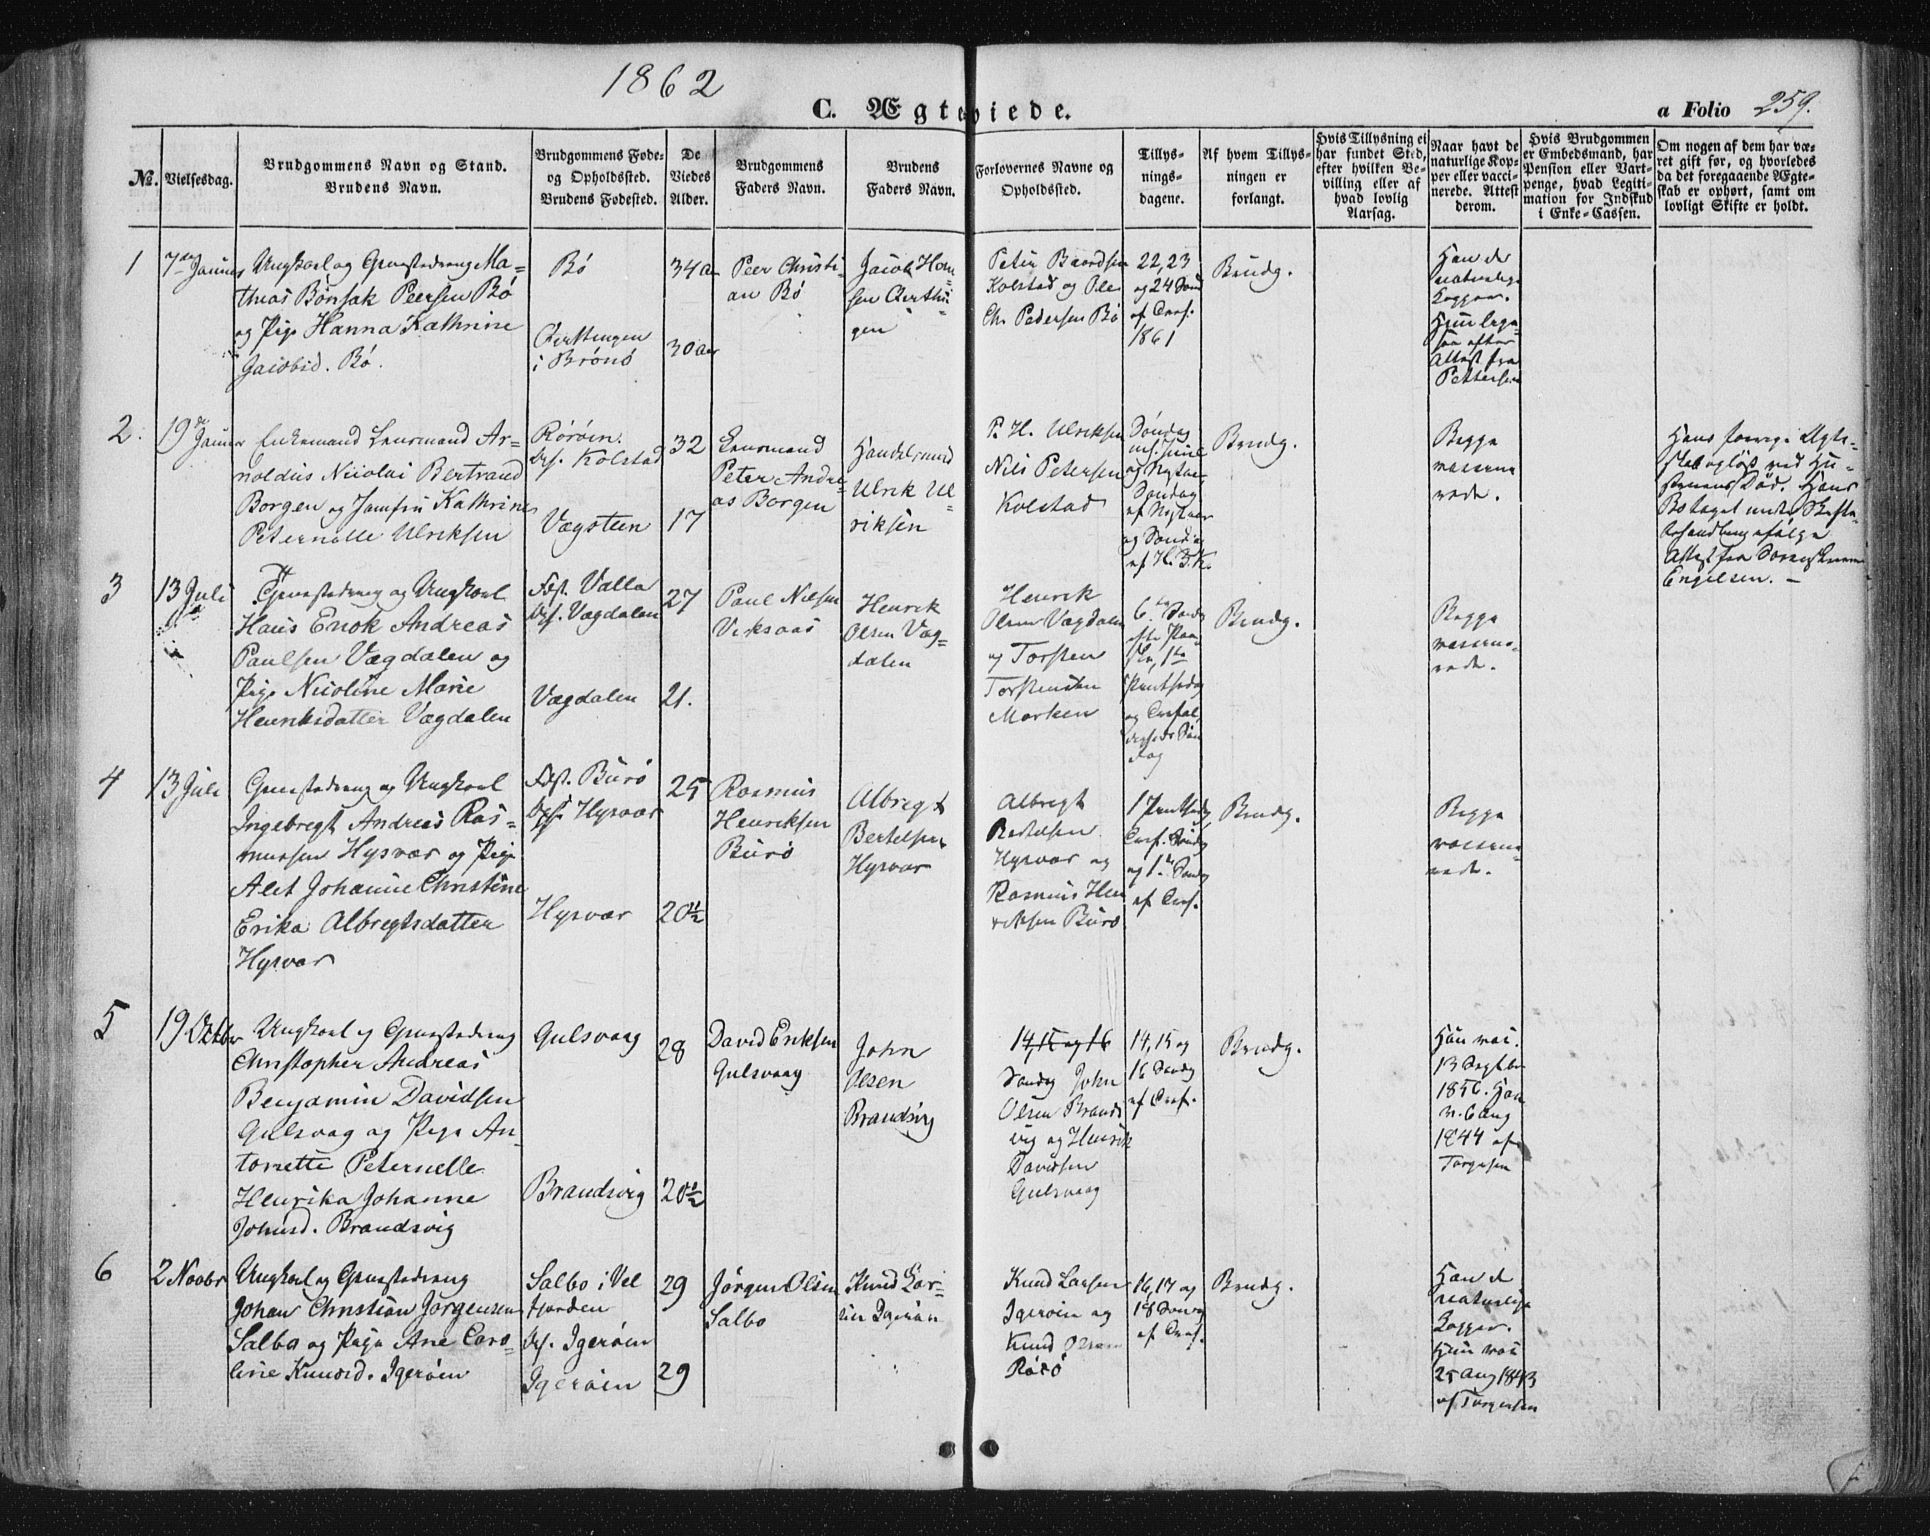 1862
C. Ægteviede.
a Folio 259.
No.
Vielsesdag.
Brudgommens Navn og Stand.
Brudens Navn.
Brudgommens Føde-
og Opholdssted.
Brudens Fødested.
De
Viedes
Alder.
Brudgommens
Faders Navn.
Brudens
Faders Navn.
Forlovernes Navne og
Opholdssted.
Tillys-
nings-
dagene.
Af hvem Tillys-
ningen er
forlangt.
Hvis Tillysning ei
har fundet Sted,
efter hvilken Be-
villing eller af
hvad lovlig
Aarsag.
Naar havt de
naturlige Kop-
per eller vacci-
nerede. Attest
derom.
Hvis Brudgommen
er Embedsmand, har
Pension eller Vart-
penge, hvad Legiti-
mation for Indskud
i Enke-Cassen.
Om nogen af dem har væ-
ret gift før, og hvorledes
da det foregaaende Ægte-
skab er ophørt, samt om
lovligt Skifte er holdt.
1
Ungkarl og Gaardsdreng Ma-
thias Bønsak Peersen Bø
og Pige Hanna Kathrine
Jacobsd. Bø.
Bø
i Brønø
34 aar
30 aar
Peer Christi-
an Bø
Jacob Han-
sen
gen
Peter Baardsen
Kolstad og Ole
Chr. Pedersen Bø
22, 23
og 24 Sønd
af Tref.
1861
Brudg.
Han de
naturlige
Kopper.
Hun lige-
saa efter
Attest fra
Pettersen
2.
19de Januar
Enkemand Lensmand Ar-
noldus Nicolai Bertrand
Borgen og Jomfru Kathrine
Peternelle Ulriksen
Rørøen.
Opf. Kolstad
Vægsteen
32
17
Lensmand
Peter Andre-
as Borgen
Handelsmand
Ulrik Ul-
riksen
P. H. Ulriksen
Nils Petersen
Kolstad
Søndag
ml. Juul
og Nytaar
Søndag
af Nytaar
og Søndag
af H. 3. K.
Brudg.
Begge
vaccine-
rede.
Hans forrige Ægte-
skab opløst ved Hu-
struens Død. Hans
Bo taget under Skifte-
behandling ifølge
Attest fra Sorenskriver
Engelsen. —
3
13 Juli
Gaardsdreng og Ungkarl
Hans Enok Andreas
Paulsen Vægdalen og
Pige Nicoline Marie
Henriksdatter Vægdalen
Fst. Valla
Opf. Vægdalen
Vægdalen
27
21.
Paul Nilsen
Henrik
Olsen Væg-
dalen
Henrik
Olsen Vægdalen
og Torsten
Torstensen
Marken
6te Søndag
efter Paa-
ske, 1ste
Pintsedag
og Trefol-
digheds Søn-
dag
Brudg.
Begge
vaccine-
rede.
4
13 Juli
Gaardsdreng og Ungkarl
Ingebregt Andreas Ras-
mussen Hysvær og Pige
Alet Johanne Christine
Erika Albregtsdatter
Hysvær
Fst. Burø
Opf. Hysvær
Hysvær
25
20½
Rasmus
Henriksen
Burø
Albregt
Bertelsen
Hysvær
Albregt
Bertelsen
Hysvær og
Rasmus Hen
riksen Burø
1 Pintsedag
Tref. Søndag
og 1ste Søndag
af Tref.
Brudg.
Begge
vaccine-
rede.
5
19 Octbr
Ungkarl og Gaardsdreng
Christopher Andreas
Benjamin Davidsen
Gulsvag og Pige An-
tonette Peternelle
Henrika Johanne
Johnsd. Brandsvig
Gulsvaag
Brandsvig
28
20½
David Eriksen
Gulsvaag
John
Olsen
Brandsvig
14, 15 og 16
Søndag John
Olsen Brands
vig og Henrik
Davidsen
Gulsvaag
14, 15 og
16 Søndag
af Tref.
Brudg.
Hun vac.
13 Septbr
1856. Han
v. 6 Aug
1844 af
Torgersen
6
2 Novbr
Ungkarl og Gaardsdreng
Johan Christian Jørgensen
Salbo og Pige Ane Caro-
line Knudsd. Igerøen
Salbo i Vel
fjorden
Opf. Igerøen
Igerøen
29
29
Jørgen Olsen
Salbo
Knud Lar-
sen Igerøen
Knud Larsen
Igerøen og
Knud Olsen
Rørø
16, 17 og
18 Søndag
af Tref.
Brudg.
Han de
naturlige
Kopper.
Hun vac
25 Aug 1843
af Torgersen